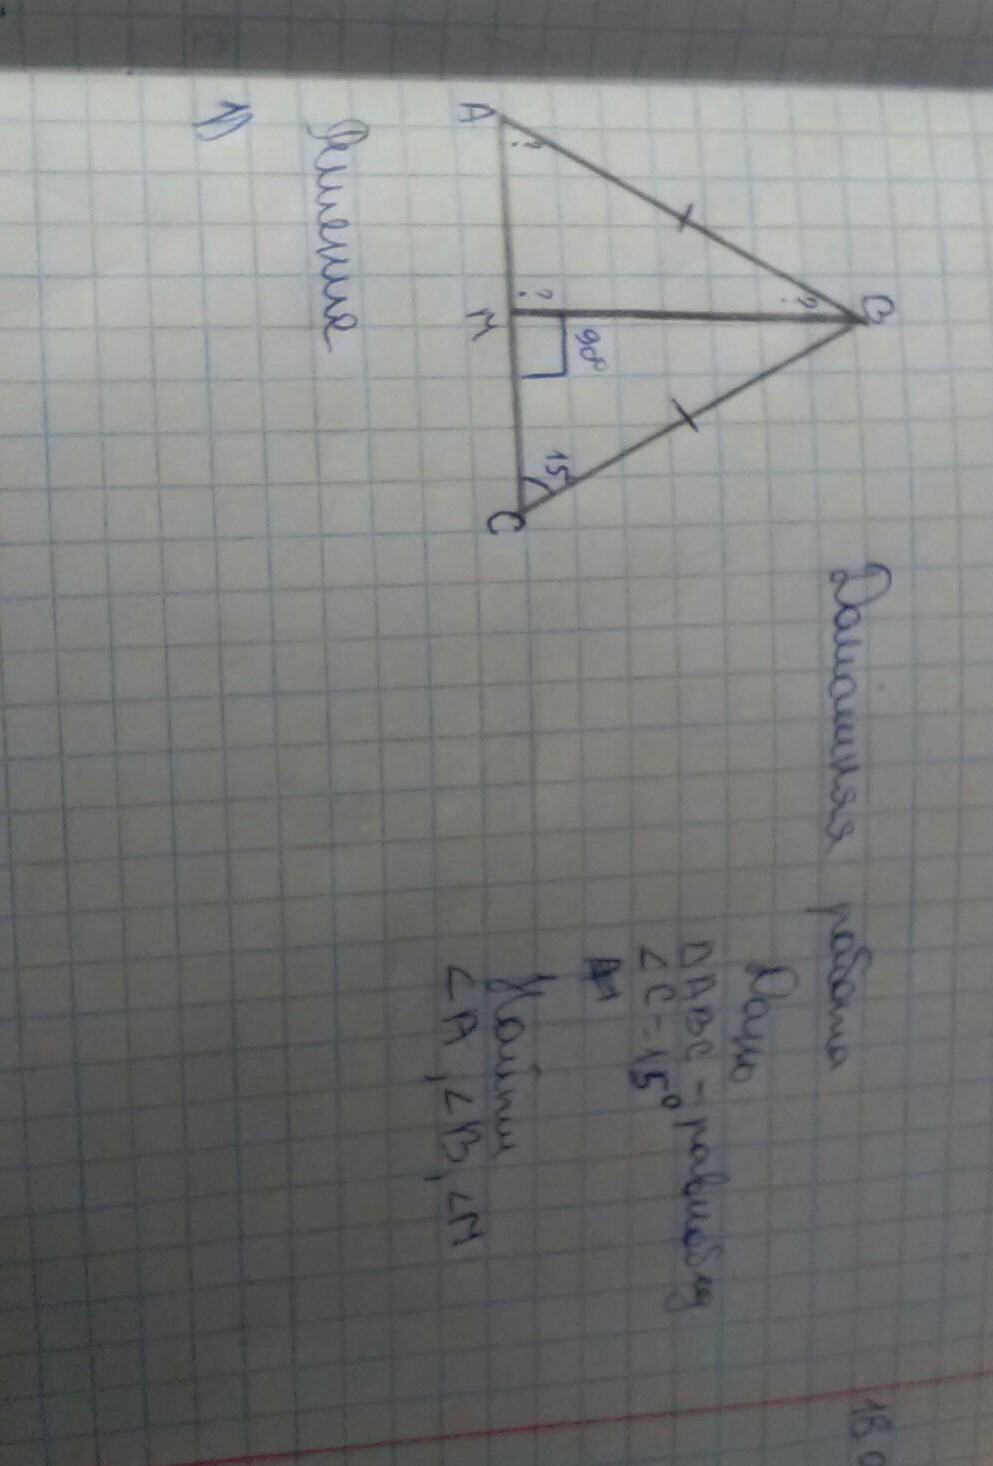 18
Домашняя работа
Дано
ΔABC - равнобед
∠C = 15°
Найти
∠A, ∠B, ∠M
B
?
90°
?
15°
?
A
M
C
Решение
1)